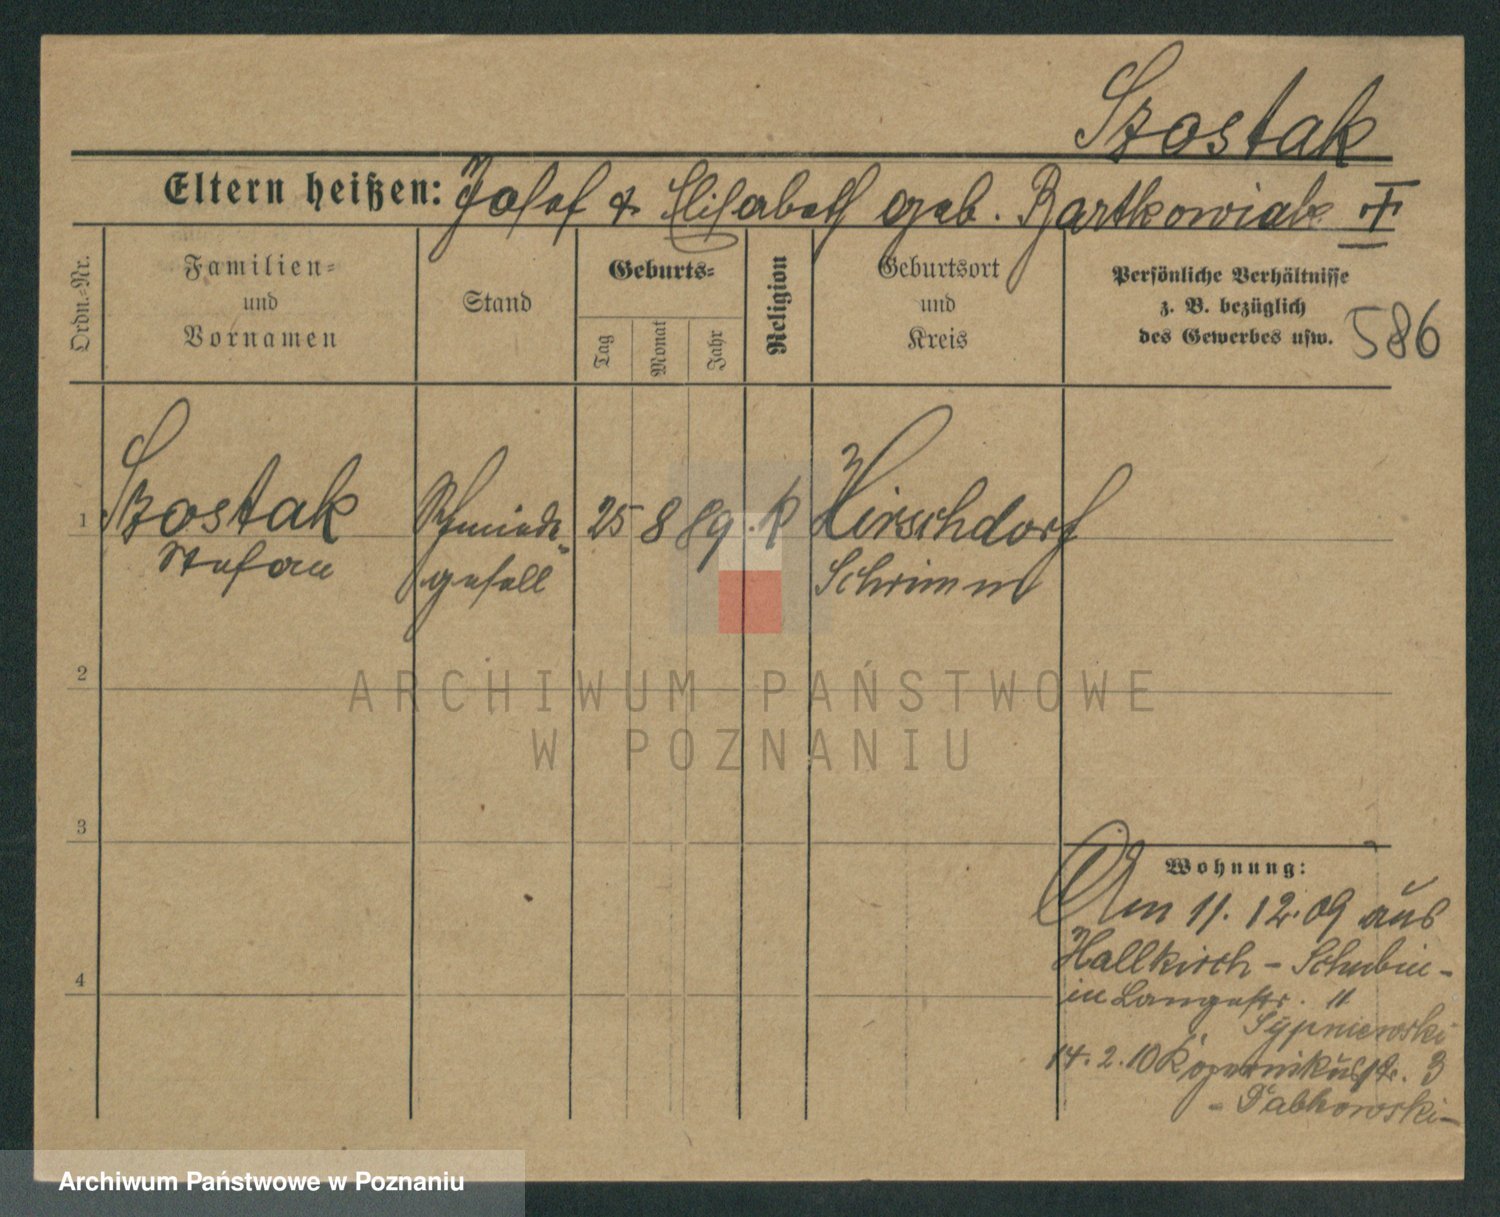 Szostak
Eltern heißen: Josef & Elisabeth geb. Bartkowiak
Ordn.-Nr.
Familien-
und
Vornamen
Stand
Geburts-
Tag
Monat
Jahr
Religion
Geburtsort
und
Kreis
Persönliche Verhältnisse
z. B. bezüglich
des Gewerbes usw.
586
1 Szostak Schmiede- 25 8 89. K Hirschdorf
Stefan gesell Schrimm
2
ARCHIWUM PAŃSTWOWE
W POZNANIU
3
Wohnung:
Am 11. 12. 09 aus
Hallkirch - Schubin -
4
in Langestr. 11
Sypniewski
14. 2. 10 Kopernikusstr. 3
- Dabkowski -
Archiwum Państwowe w Poznaniu